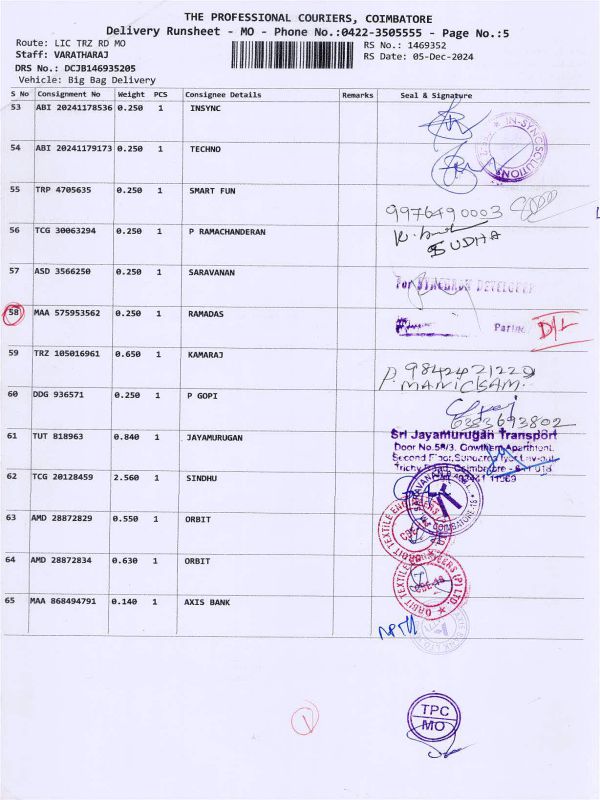 THE PROFESSIONAL COURIERS, COIMBATORE
Delivery Runsheet - MO - Phone No.:0422-3505555 - Page No.:5
Route: LIC TRZ RD MO
RS No.: 1469352
Staff: VARATHARAJ
RS Date: 05-Dec-2024
DRS No.: DCJB146935205
Vehicle: Big Bag Delivery
S No Consignment No Weight PCS Consignee Details Remarks Seal & Signature
53 ABI 20241178536 0.250 1 INSYNC
IN-SYNC SOLUTIONS
54 ABI 20241179173 0.250 1 TECHNO
55 TRP 4705635 0.250 1 SMART FUN
9976490003
56 TCG 30063294 0.250 1 P RAMACHANDERAN
SUDHA
57 ASD 3566250 0.250 1 SARAVANAN
For SYNCHRON DEVELOPER
58 MAA 575953562 0.250 1 RAMADAS
Partner
D/L
59 TRZ 105016961 0.650 1 KAMARAJ
9842421220
P. MANICKAM.
60 DDG 936571 0.250 1 P GOPI
6383693802
61 TUT 818963 0.840 1 JAYAMURUGAN
Sri Jayamurugan Transport
Door No.58/3, Gowtham Apartment,
Second Floor, Sundaras Iyer Lay-out,
Trichy Road, Coimbatore - 641 018
62 TCG 20128459 2.560 1 SINDHU
63 AMD 28872829 0.550 1 ORBIT
64 AMD 28872834 0.630 1 ORBIT
ORBIT TEXTILE ENGINEERS (P) LTD.
CBE-18
65 MAA 868494791 0.140 1 AXIS BANK
TPC
MO